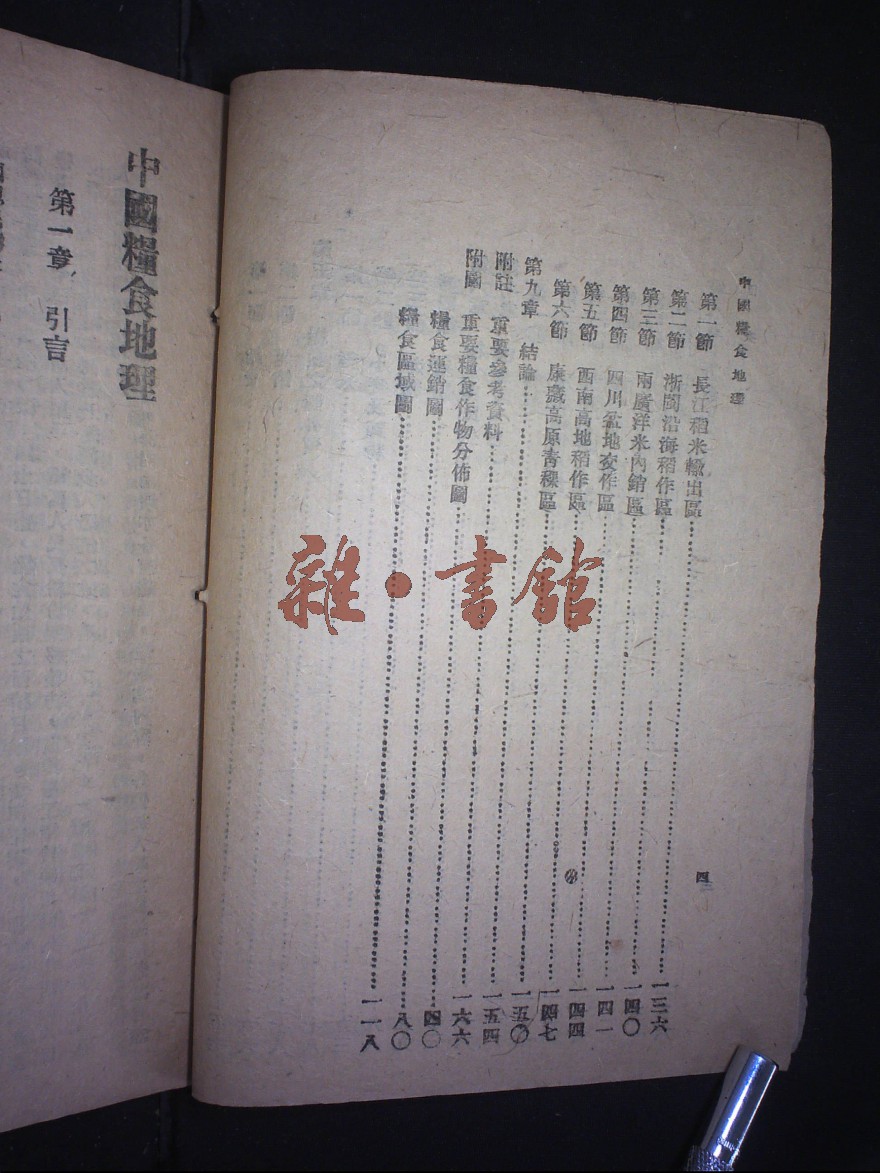 中國糧食地理
四
第一節 長江稻米輸出區……一三六
第二節 浙閩沿海稻作區……一四〇
第三節 兩廣洋米內銷區……一四一
第四節 四川盆地麥作區……一四四
第五節 西南高地稻作區……一四七
第六節 康藏高原青稞區……一五〇
第九章 結論……一五四
附註 重要參考資料……一六六
附圖 重要糧食作物分佈圖……四〇
糧食運銷圖……八〇
糧食區域圖……一一八
中國糧食地理
第一章 引言
雜·書館